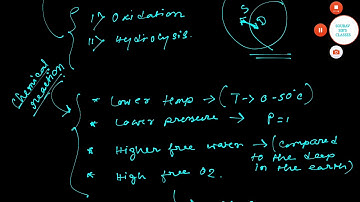 1) Oxidation
S D
11) Hydrolysis.
SOURAV
SIR'S
CLASSES
Chemical
reaction
* Lower temp → (T → 0-50°C)
* Lower pressure → P=1
* Higher free water → (compared
to the deep
in the earth)
* High free O2.